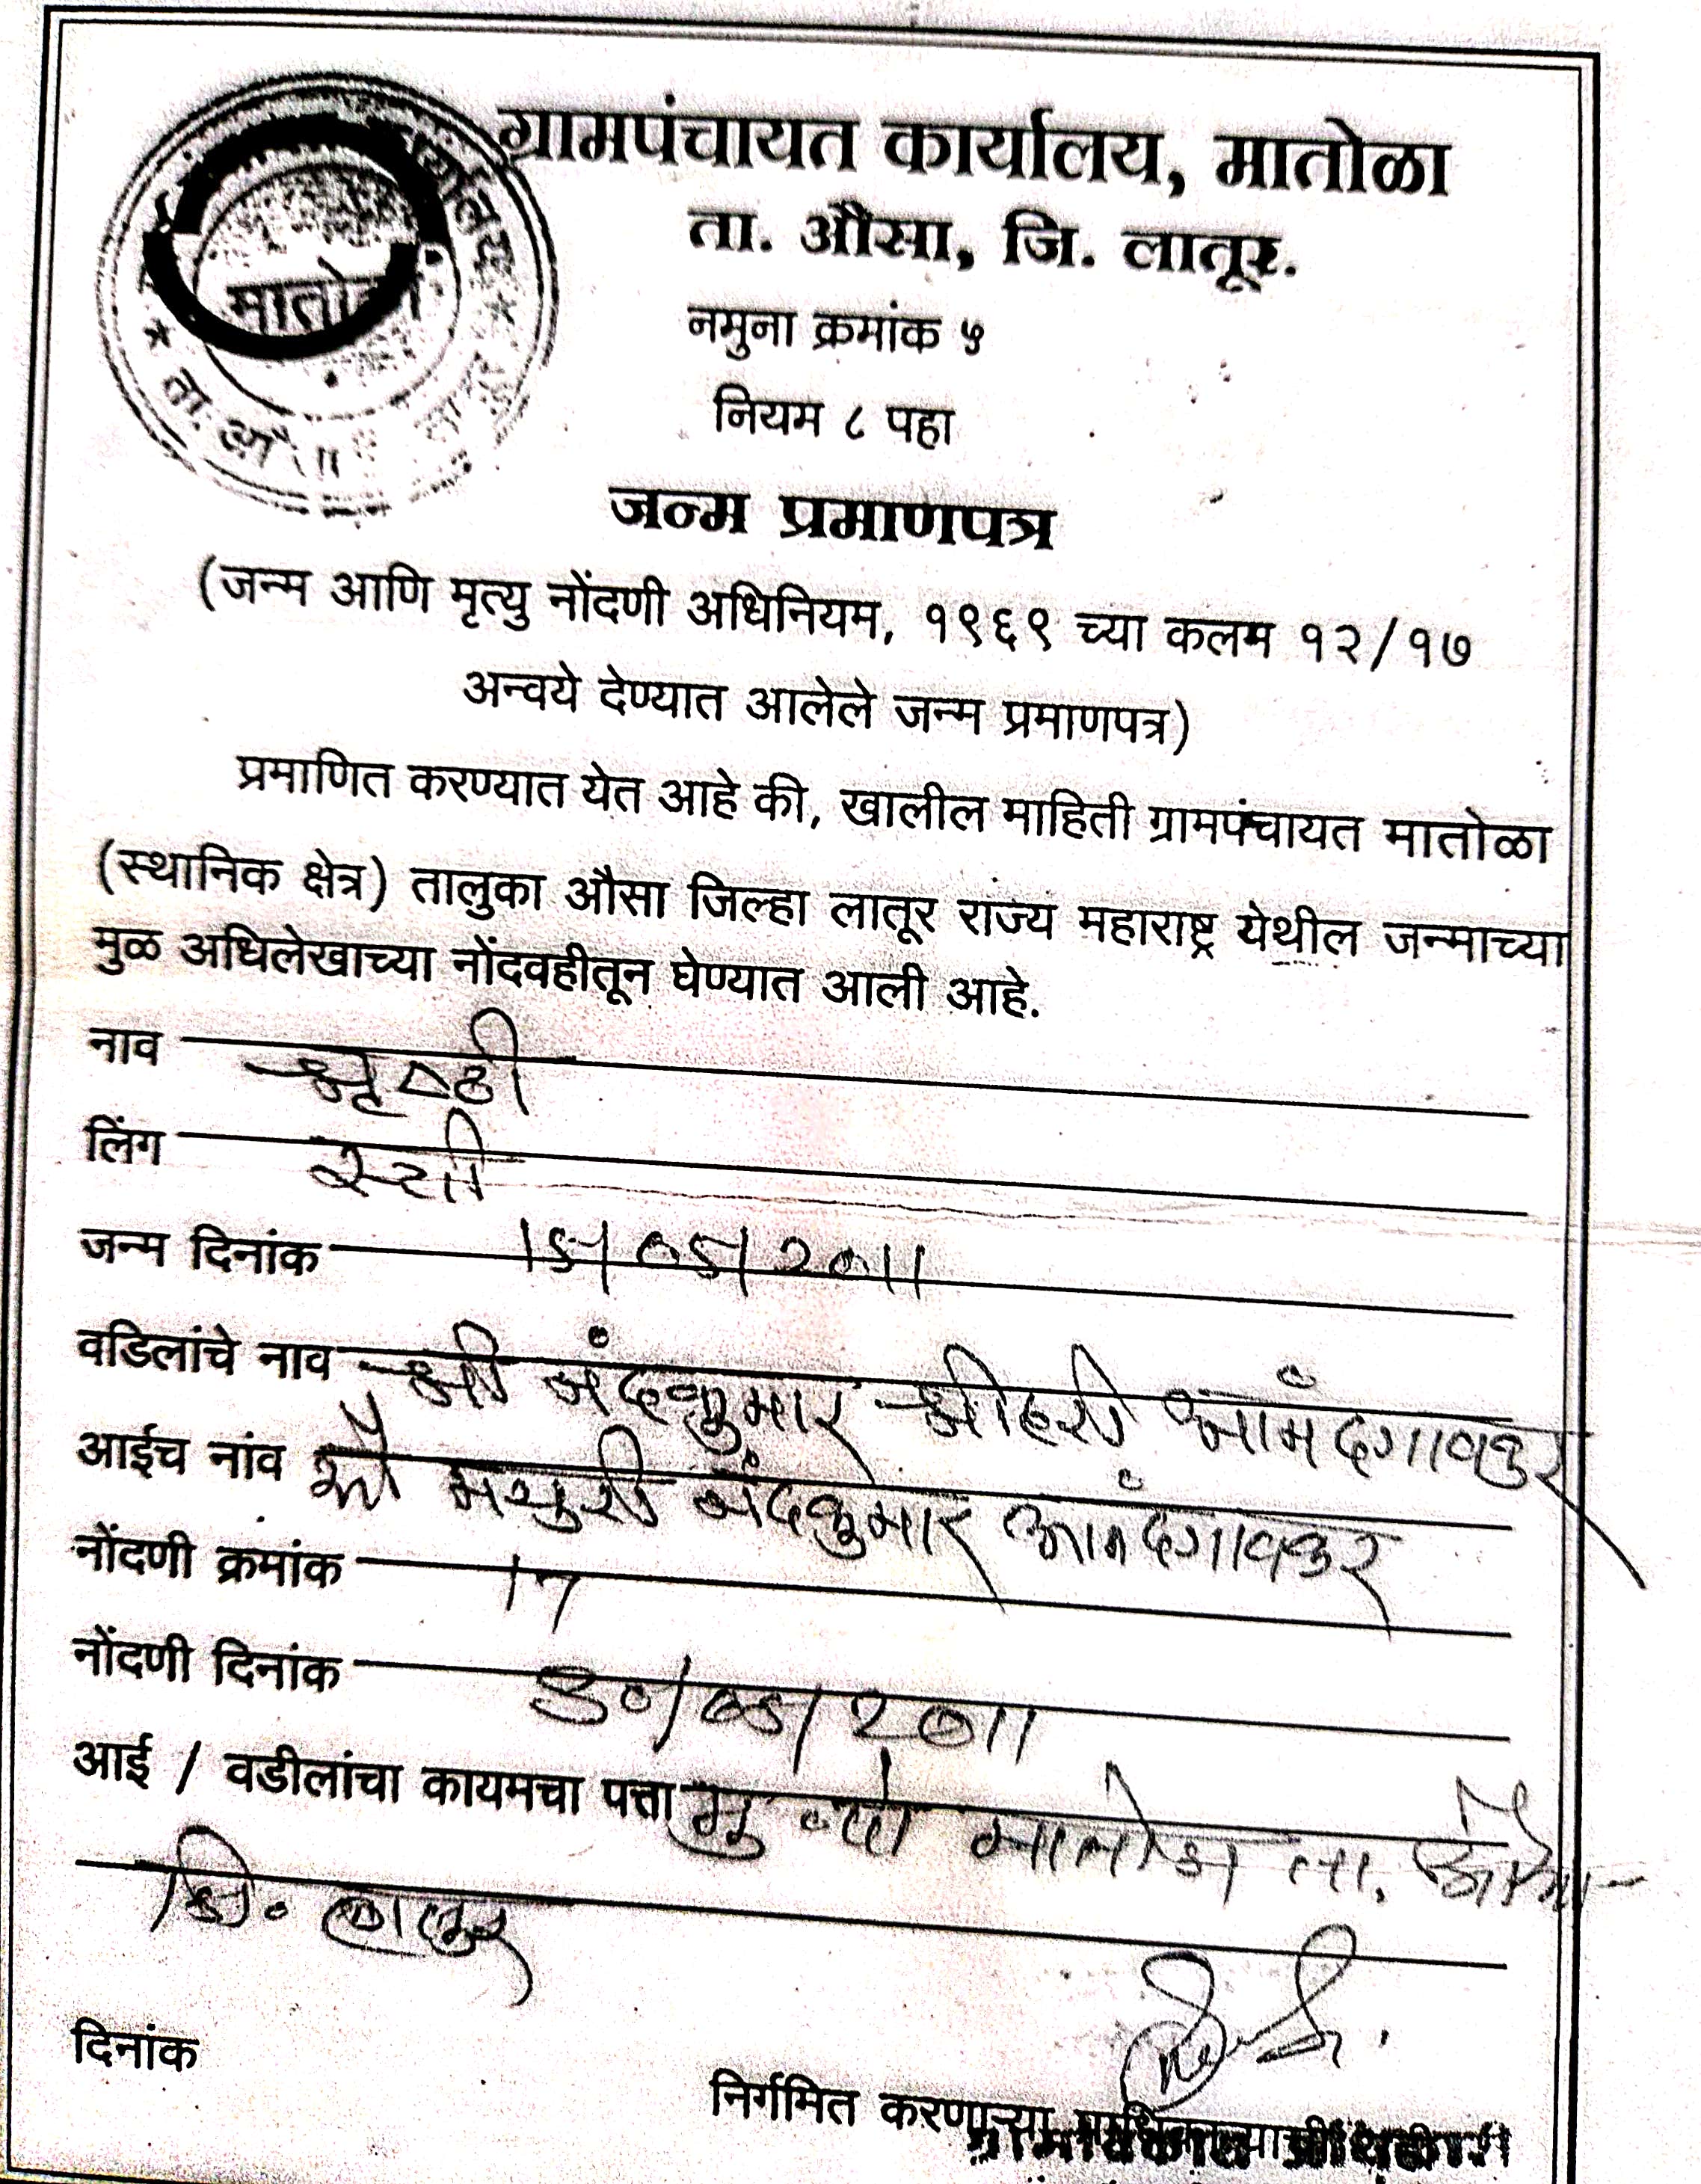 ग्रामपंचायत कार्यालय, मातोळा
ता. औसा, जि. लातूर.
मातोळा
नमुना क्रमांक ५
नियम ८ पहा
जन्म प्रमाणपत्र
(जन्म आणि मृत्यु नोंदणी अधिनियम, १९६९ च्या कलम १२/१७
अन्वये देण्यात आलेले जन्म प्रमाणपत्र)
प्रमाणित करण्यात येत आहे की, खालील माहिती ग्रामपंचायत मातोळा
(स्थानिक क्षेत्र) तालुका औसा जिल्हा लातूर राज्य महाराष्ट्र येथील जन्माच्या
मुळ अधिलेखाच्या नोंदवहीतून घेण्यात आली आहे.
नाव
लिंग स्त्री
जन्म दिनांक 15/05/2011
वडिलांचे नाव श्री नंदकुमार श्रीहरी आनंदगावकर
आईच नांव सौ मयुरी नंदकुमार आनंदगावकर
नोंदणी क्रमांक 17
नोंदणी दिनांक 30/05/2011
आई / वडीलांचा कायमचा पत्ता मु. पो मातोळा ता. औसा
जि. लातूर
दिनांक
निर्गमित करणाऱ्या